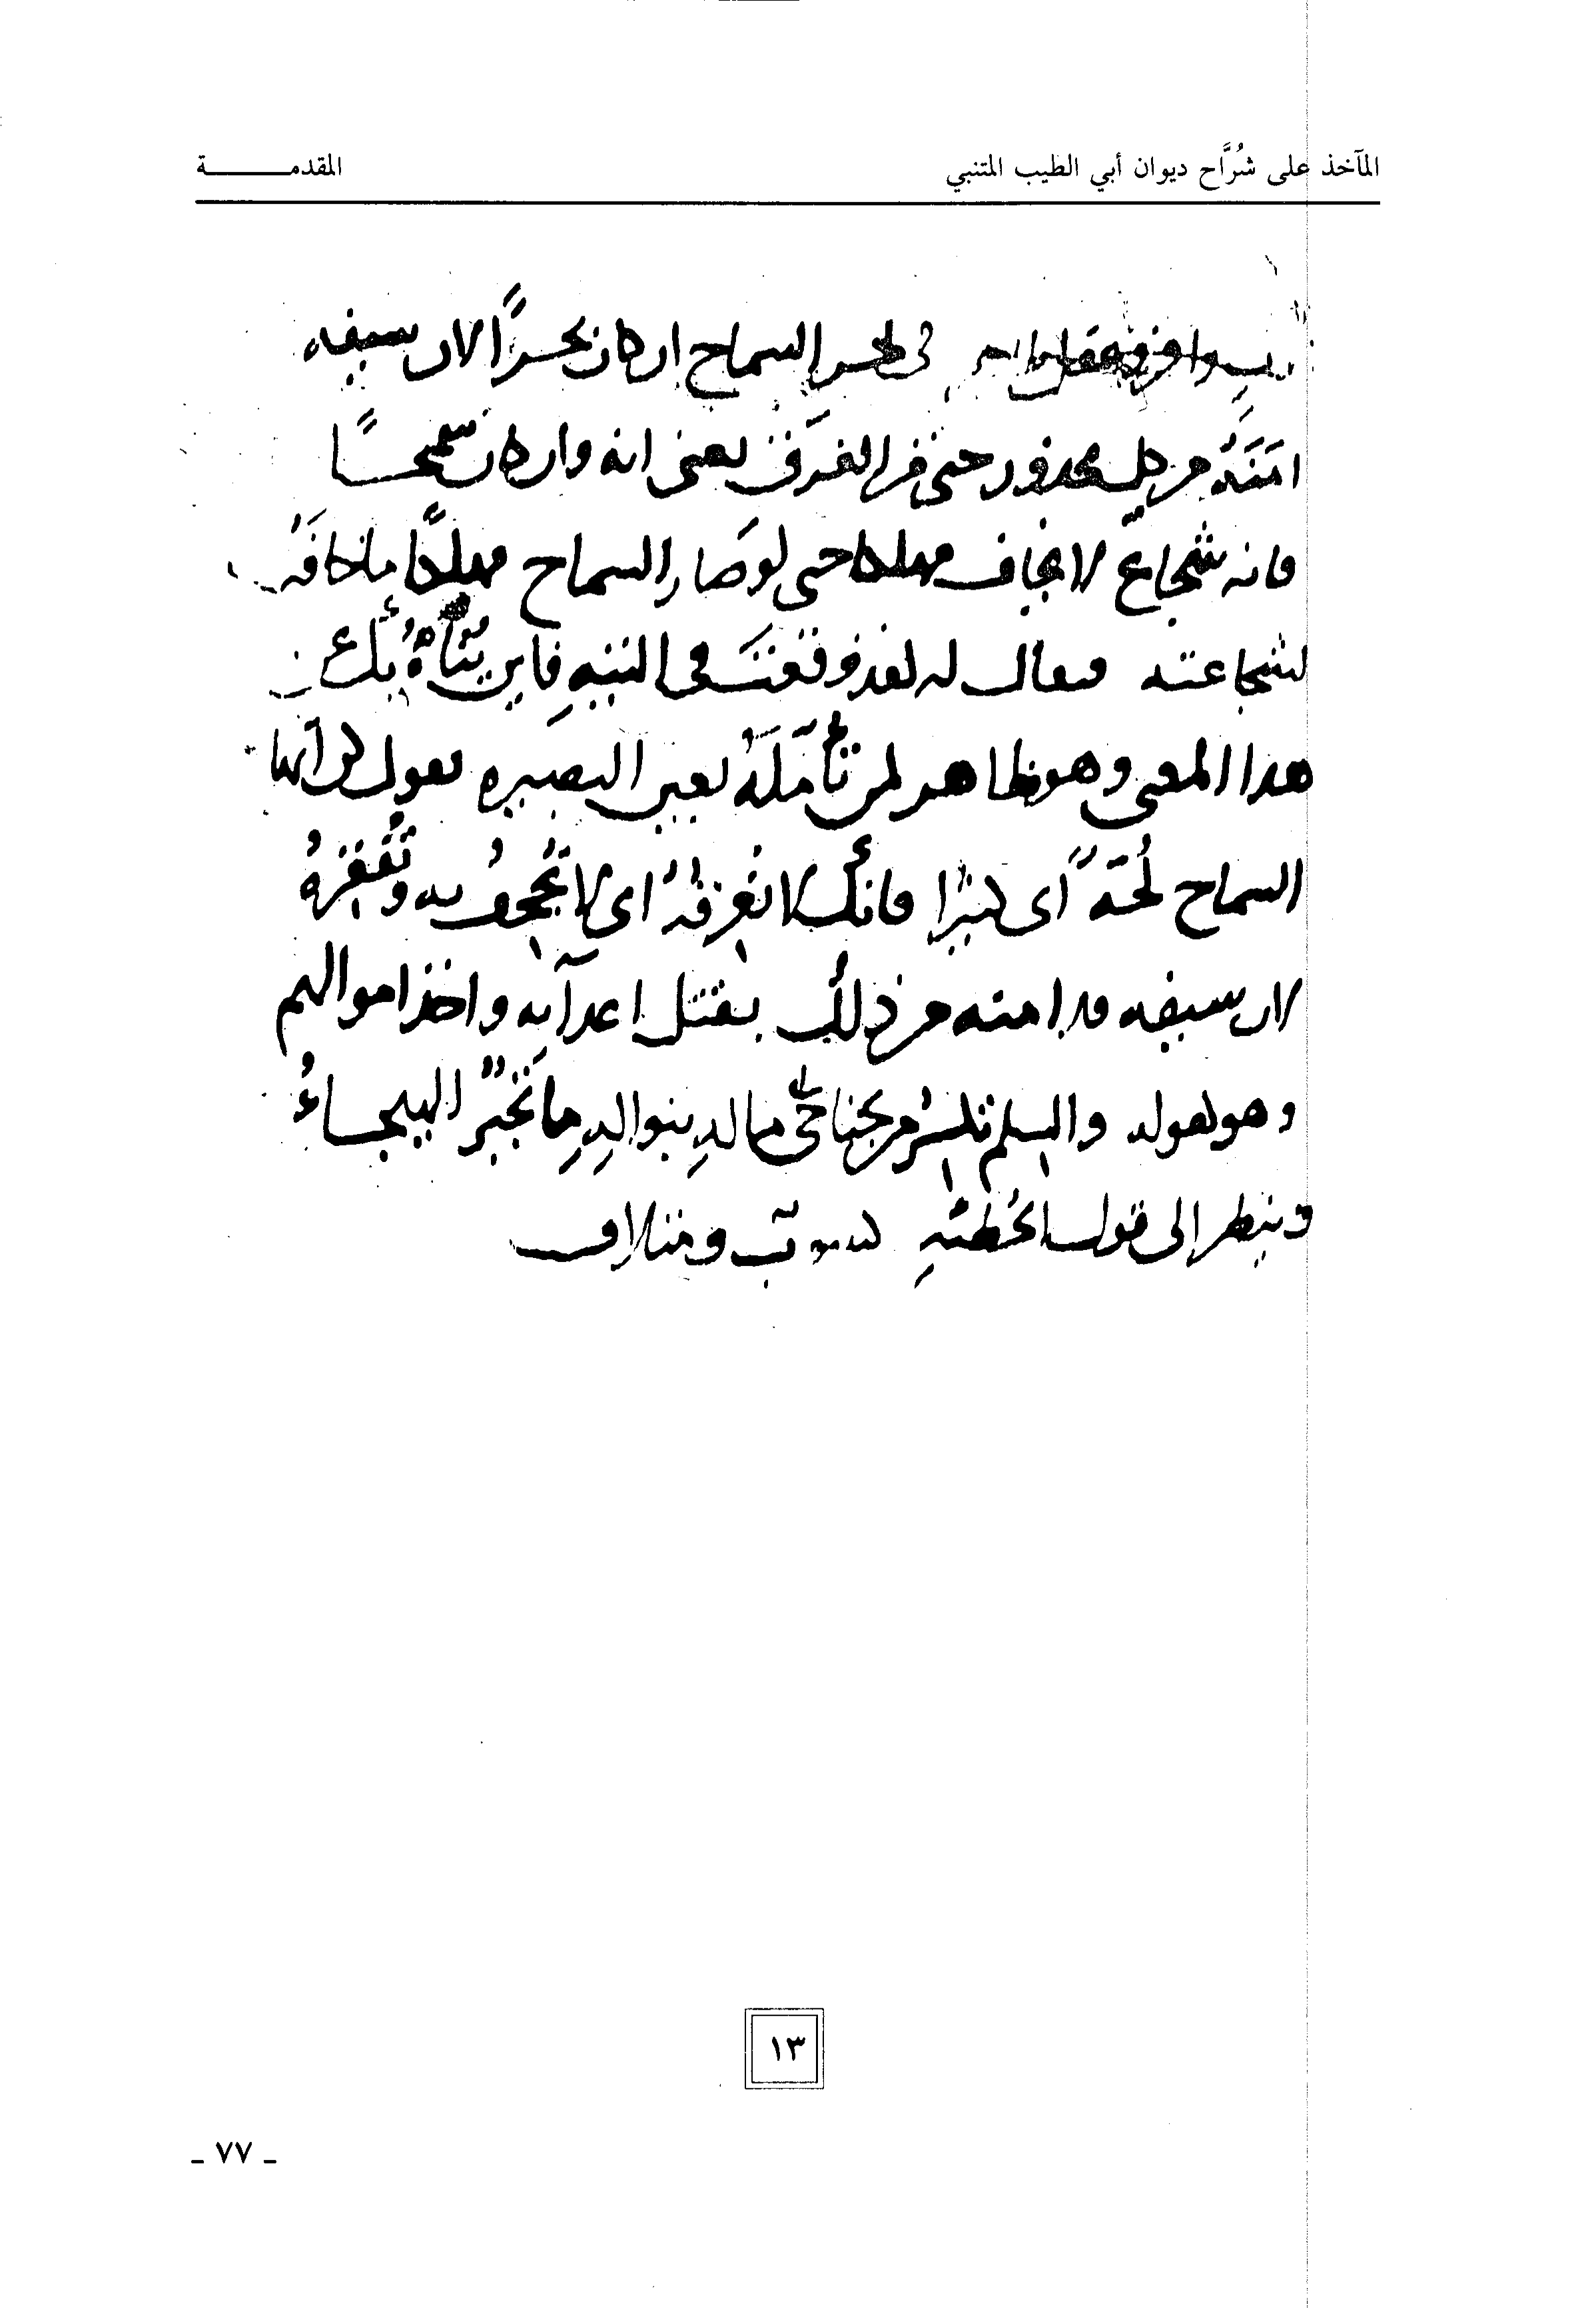 المآخذ على شُرَّاح ديوان أبي الطيب المتنبي
المقدمـــــــة
في لجج السماح ان كان بحرًا لان سيفه
امَنَهُ من كل محذور حتى من الغرق يعنى انه وان كان سمحًا
فانه شجاع لا يخاف مهلكا حتى لو صار السماح مهلكًا ما خافَهُ
لشجاعته فيقال له لقد وقعتَ في التيهِ فاين يُتاهُ بك عن
هذا المعنى وهو ظاهر لمن تأمّلَهُ بعين البصيره يقول لو انها
السماح لُجّةً اى كثيرًا فانك لا تُغرقهُ اى لا تُجحفُ به وتُفقرهُ
لان سيفه قد امنه من ذلك بقتل اعدآئه واخذ اموالهم
وهو كقوله والسلم تكسرُ من جناحَى مالهِ بنوالِهِ ما تَجْبُر الهيجاءُ
وينظر الى قول الحُطئيةِ كسوب ومتلاف
١٣
ـ ٧٧ ـ